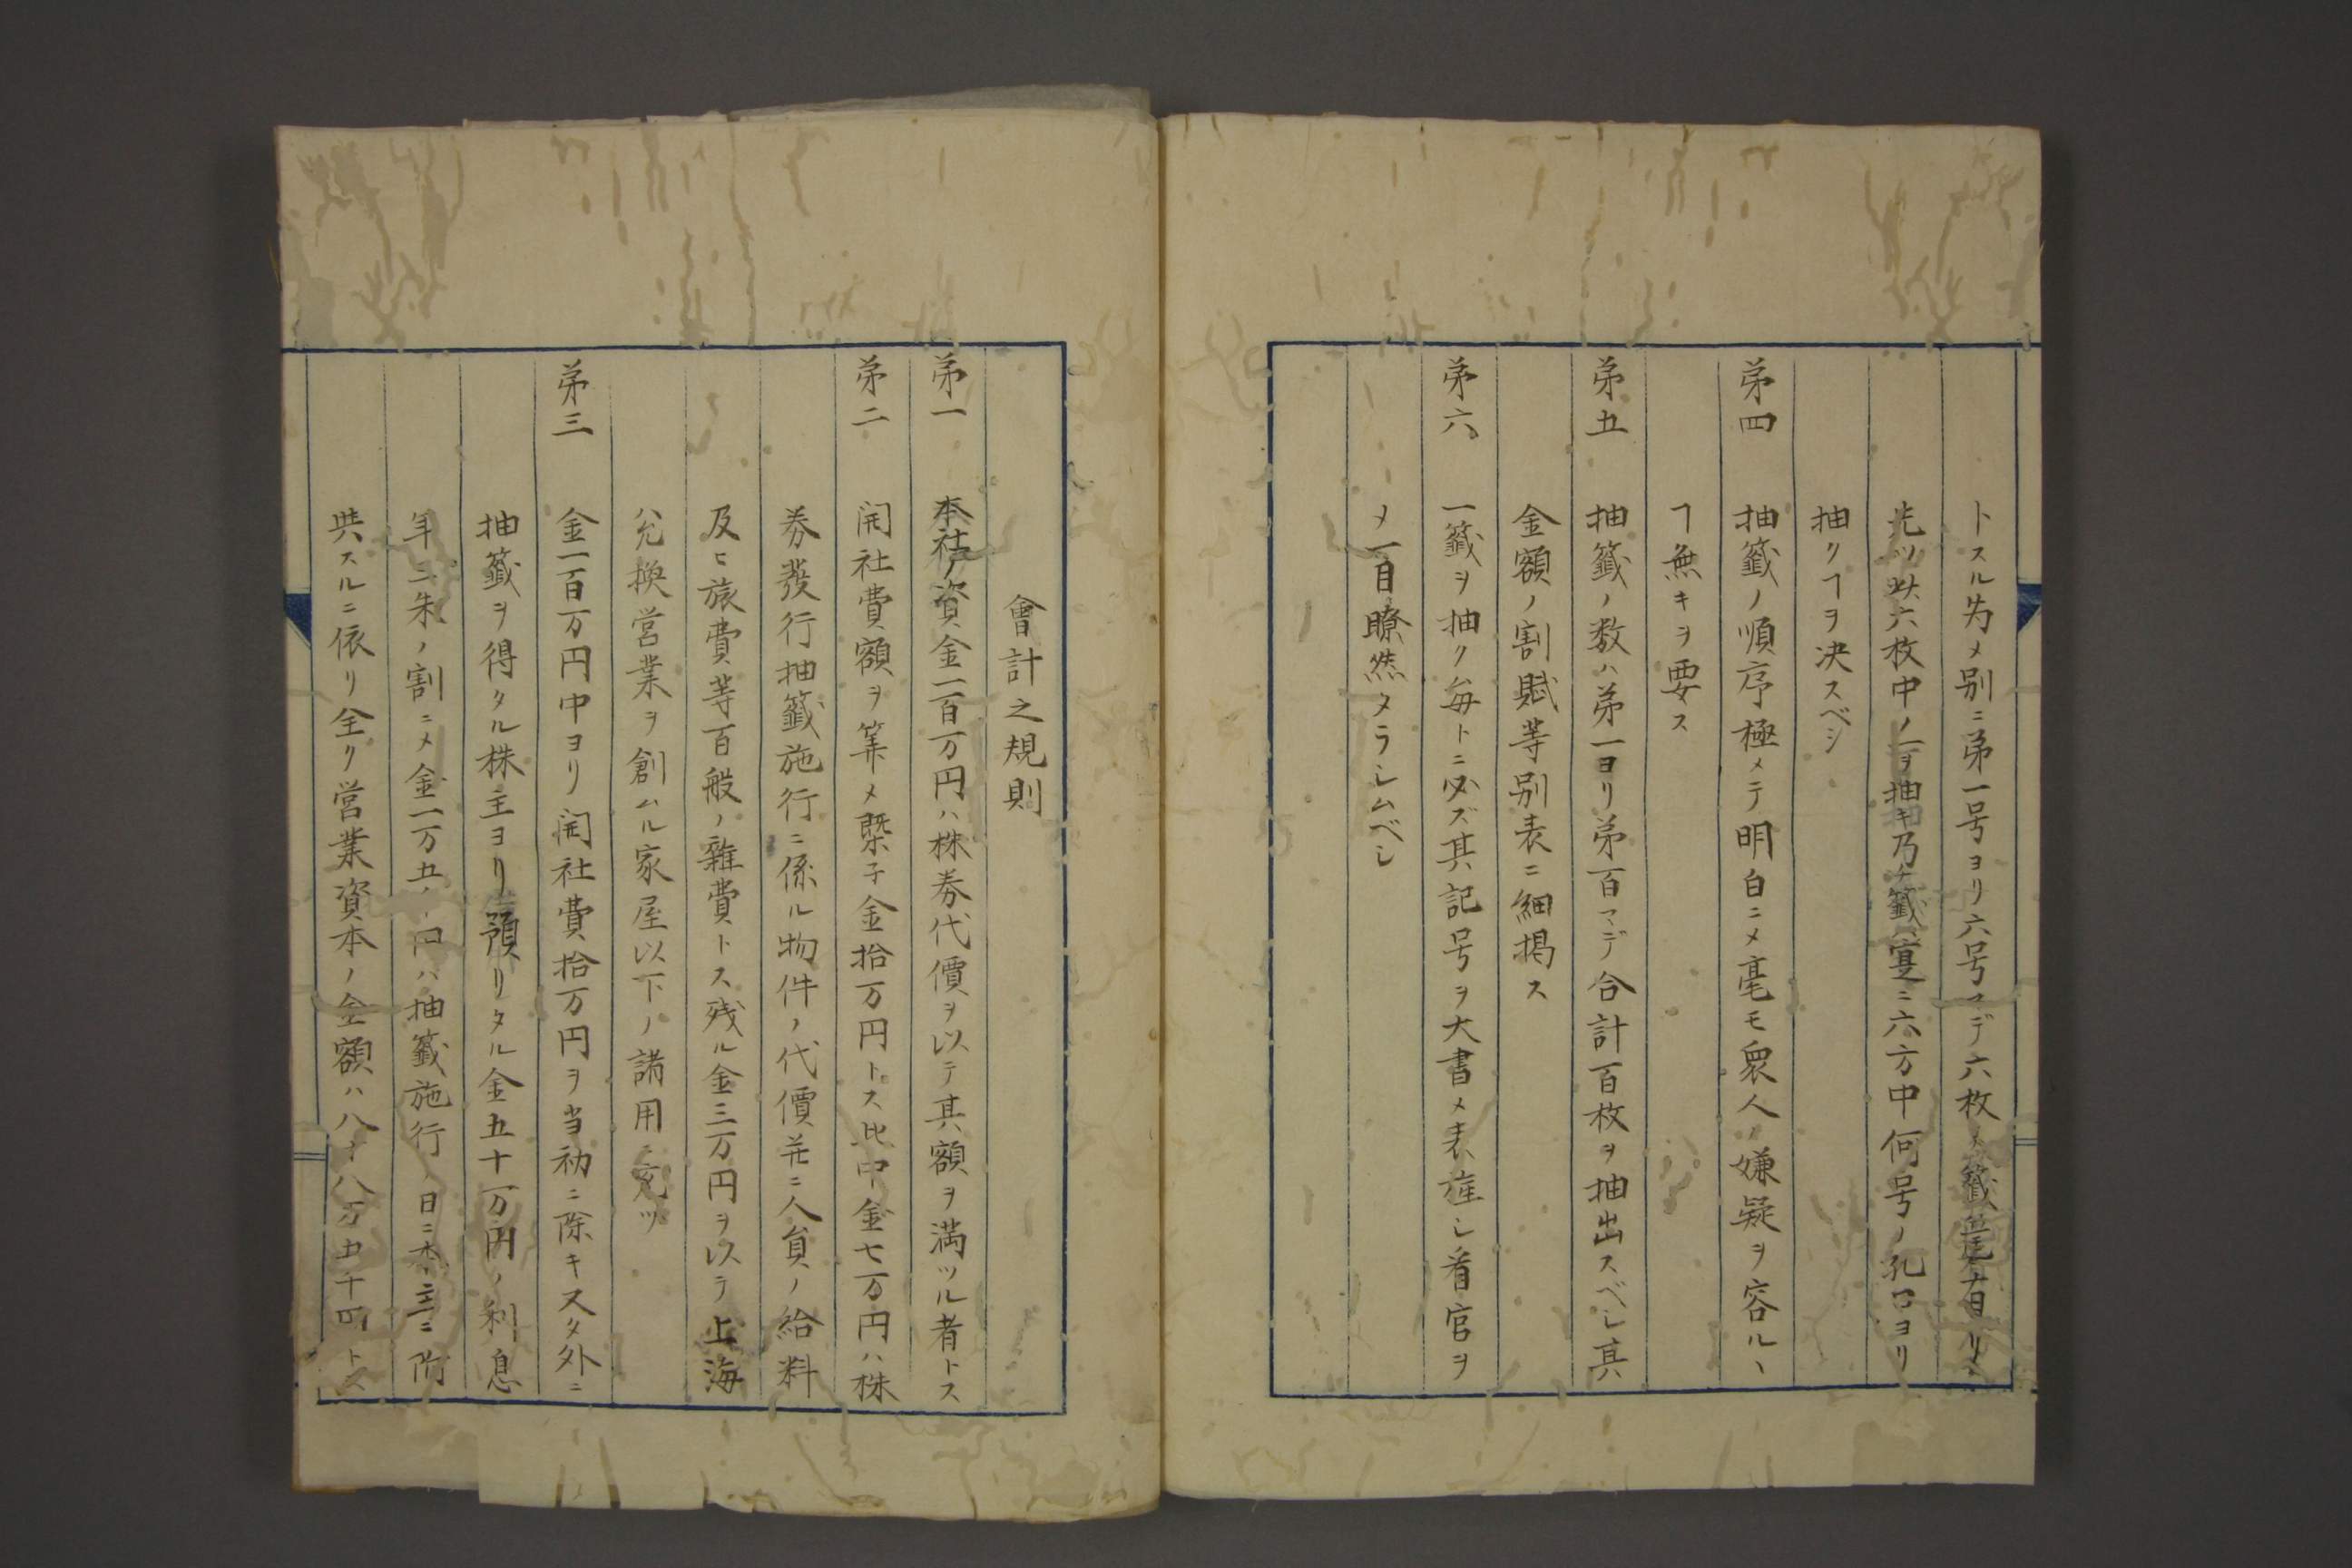 トスル為メ別ニ弟一号ヨリ六号マデ六枚ノ籤
先ツ此六枚中ノ一ヲ抽キ乃チ籤寔ニ六方中何号ノ孔口ヨリ
抽クヿヲ決スベシ
弟四 抽籤ノ順序極メテ明白ニメ毫モ衆人ノ嫌疑ヲ容ルヽ
ヿ無キヲ要ス
弟五 抽籤ノ数ハ弟一ヨリ弟百マデ合計百枚ヲ抽出スベシ其
金額ノ割賦等別表ニ細掲ス
弟六 一籤ヲ抽ク毎トニ必ズ其記号ヲ大書メ表旌シ看官ヲ
メ一目瞭然タラシムベシ
會計之規則
弟一 本社ノ資金一百万円ハ株券代價ヲ以テ其額ヲ満ツル者トス
弟二 開社費額ヲ筭メ槩子金拾万円トス此中金七万円ハ株
券發行抽籤施行ニ係ル物件ノ代價并ニ人員ノ給料
及ヒ旅費等百般ノ雜費トス残ル金三万円ヲ以テ上海
兌換営業ヲ創ムル家屋以下ノ諸用ニ充ツ
弟三 金一百万円中ヨリ開社費拾万円ヲ当初ニ除キ又タ外ニ
抽籤ヲ得タル株主ヨリ預リタル金五十一万円ノ利息
年二朱ノ割ニメ金一万五 円ハ抽籤施行ノ日ニ本主ニ附
与スルニ依リ全ク営業資本ノ金額ハ八十八万五千円トス